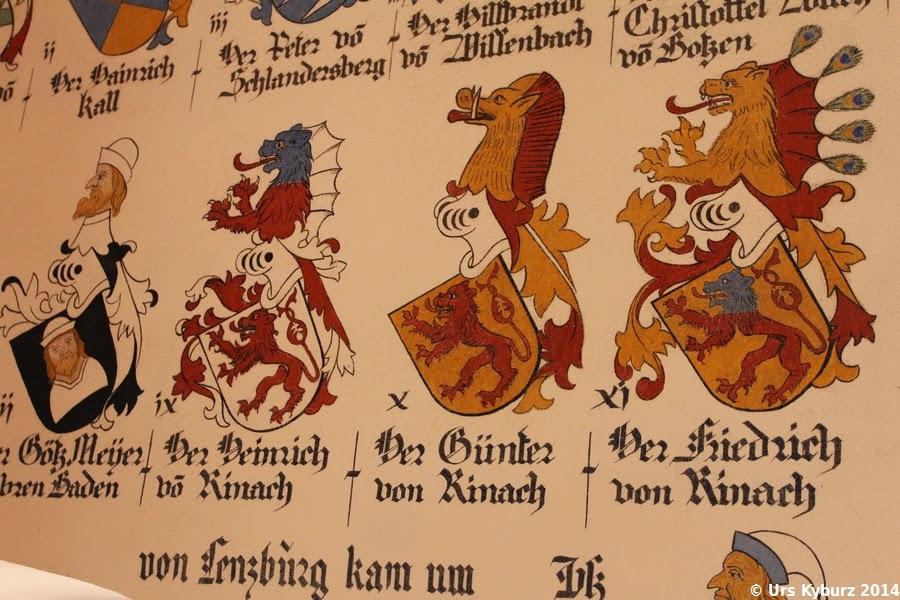 iij
ij
Her Hainrich
kall
Her Peter vō
Schlandersberg
Her Hillbrandt
vō Willenbach
Christoffel
vō Botzen
vō
ij
Götz Meÿer
Baden
ix
Her Heinrich
vō Rinach
x
Her Günter
von Rinach
xj
Her Friedrich
von Rinach
von Lenzbūrg kam um
© Urs Kyburz 2014